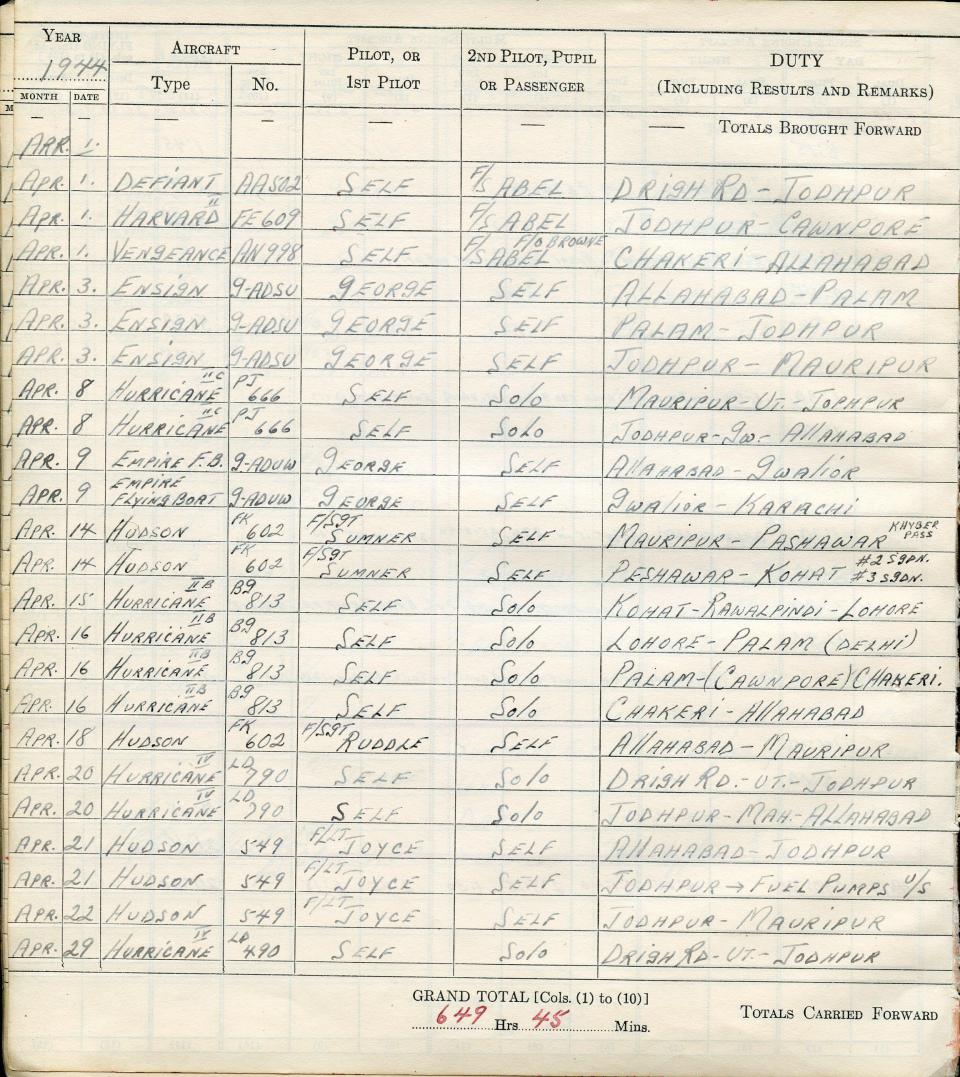 YEAR AIRCRAFT PILOT, OR 2ND PILOT, PUPIL DUTY
1944 Type No. 1ST PILOT OR PASSENGER (INCLUDING RESULTS AND REMARKS)
MONTH DATE
— — — — — — —— TOTALS BROUGHT FORWARD
APR. 1.
APR. 1. DEFIANT AA502 SELF F/S ABEL DRIGH RD - JODHPUR
APR. 1. HARVARD II FE609 SELF F/S ABEL JODHPUR - CAWNPORE
APR. 1. VENGEANCE AN998 SELF F/S ABEL F/O BROWNE CHAKERI - ALLAHABAD
APR. 3. ENSIGN G-ADSU GEORGE SELF ALLAHABAD - PALAM
APR. 3. ENSIGN G-ADSU GEORGE SELF PALAM - JODHPUR
APR. 3. ENSIGN G-ADSU GEORGE SELF JODHPUR - MAURIPUR
APR. 8 HURRICANE IIC PJ 666 SELF Solo MAURIPUR - UT. - JOPHPUR
APR. 8 HURRICANE IIC PJ 666 SELF SOLO JODHPUR - GW - ALLAHABAD
APR. 9 EMPIRE F.B. G-ADUW GEORGE SELF AllAHABAD - GWAlIOR
APR. 9 EMPIRE FLYING BOAT G-ADUW GEORGE SELF GWAlIOR - KARACHI
APR. 14 HUDSON FK 602 F/SGT SUMNER SELF MAURIPUR - PASHAWAR KHYBER PASS
APR. 14 HUDSON FK 602 F/SGT SUMNER SELF PESHAWAR - KOHAT #2 SQDN. #3 SQDN.
APR. 15 HURRICANE IIB BG 813 SELF Solo KOHAT - RAWALPINDI - LOHORE
APR. 16 HURRICANE IIB BG 813 SELF Solo LOHORE - PALAM (DELHI)
APR. 16 HURRICANE IIB BG 813 SELF Solo PALAM - (CAWNPORE) CHAKERI.
APR. 16 HURRICANE IIB BG 813 SELF Solo CHAKERI - AllAHABAD
APR. 18 HUDSON FK 602 F/SGT RUDDLE SELF AllAHABAD - MAURIPUR
APR. 20 HURRICANE IV LD 790 SELF Solo DRIGH RD. - UT. - JODHPUR
APR. 20 HURRICANE IV LD 790 SELF Solo JODHPUR - MAH - ALLAHABAD
APR. 21 HUDSON 549 F/LT JOYCE SELF AllAHABAD - JODHPUR
APR. 21 HUDSON 549 F/LT JOYCE SELF JODHPUR → FUEL PUMPS U/S
APR. 22 HUDSON 549 F/LT JOYCE SELF JODHPUR - MAURIPUR
APR. 29 HURRICANE IV LD 490 SELF Solo DRIGH RD - UT. - JODHPUR
GRAND TOTAL [Cols. (1) to (10)]
649 Hrs 45 Mins. TOTALS CARRIED FORWARD